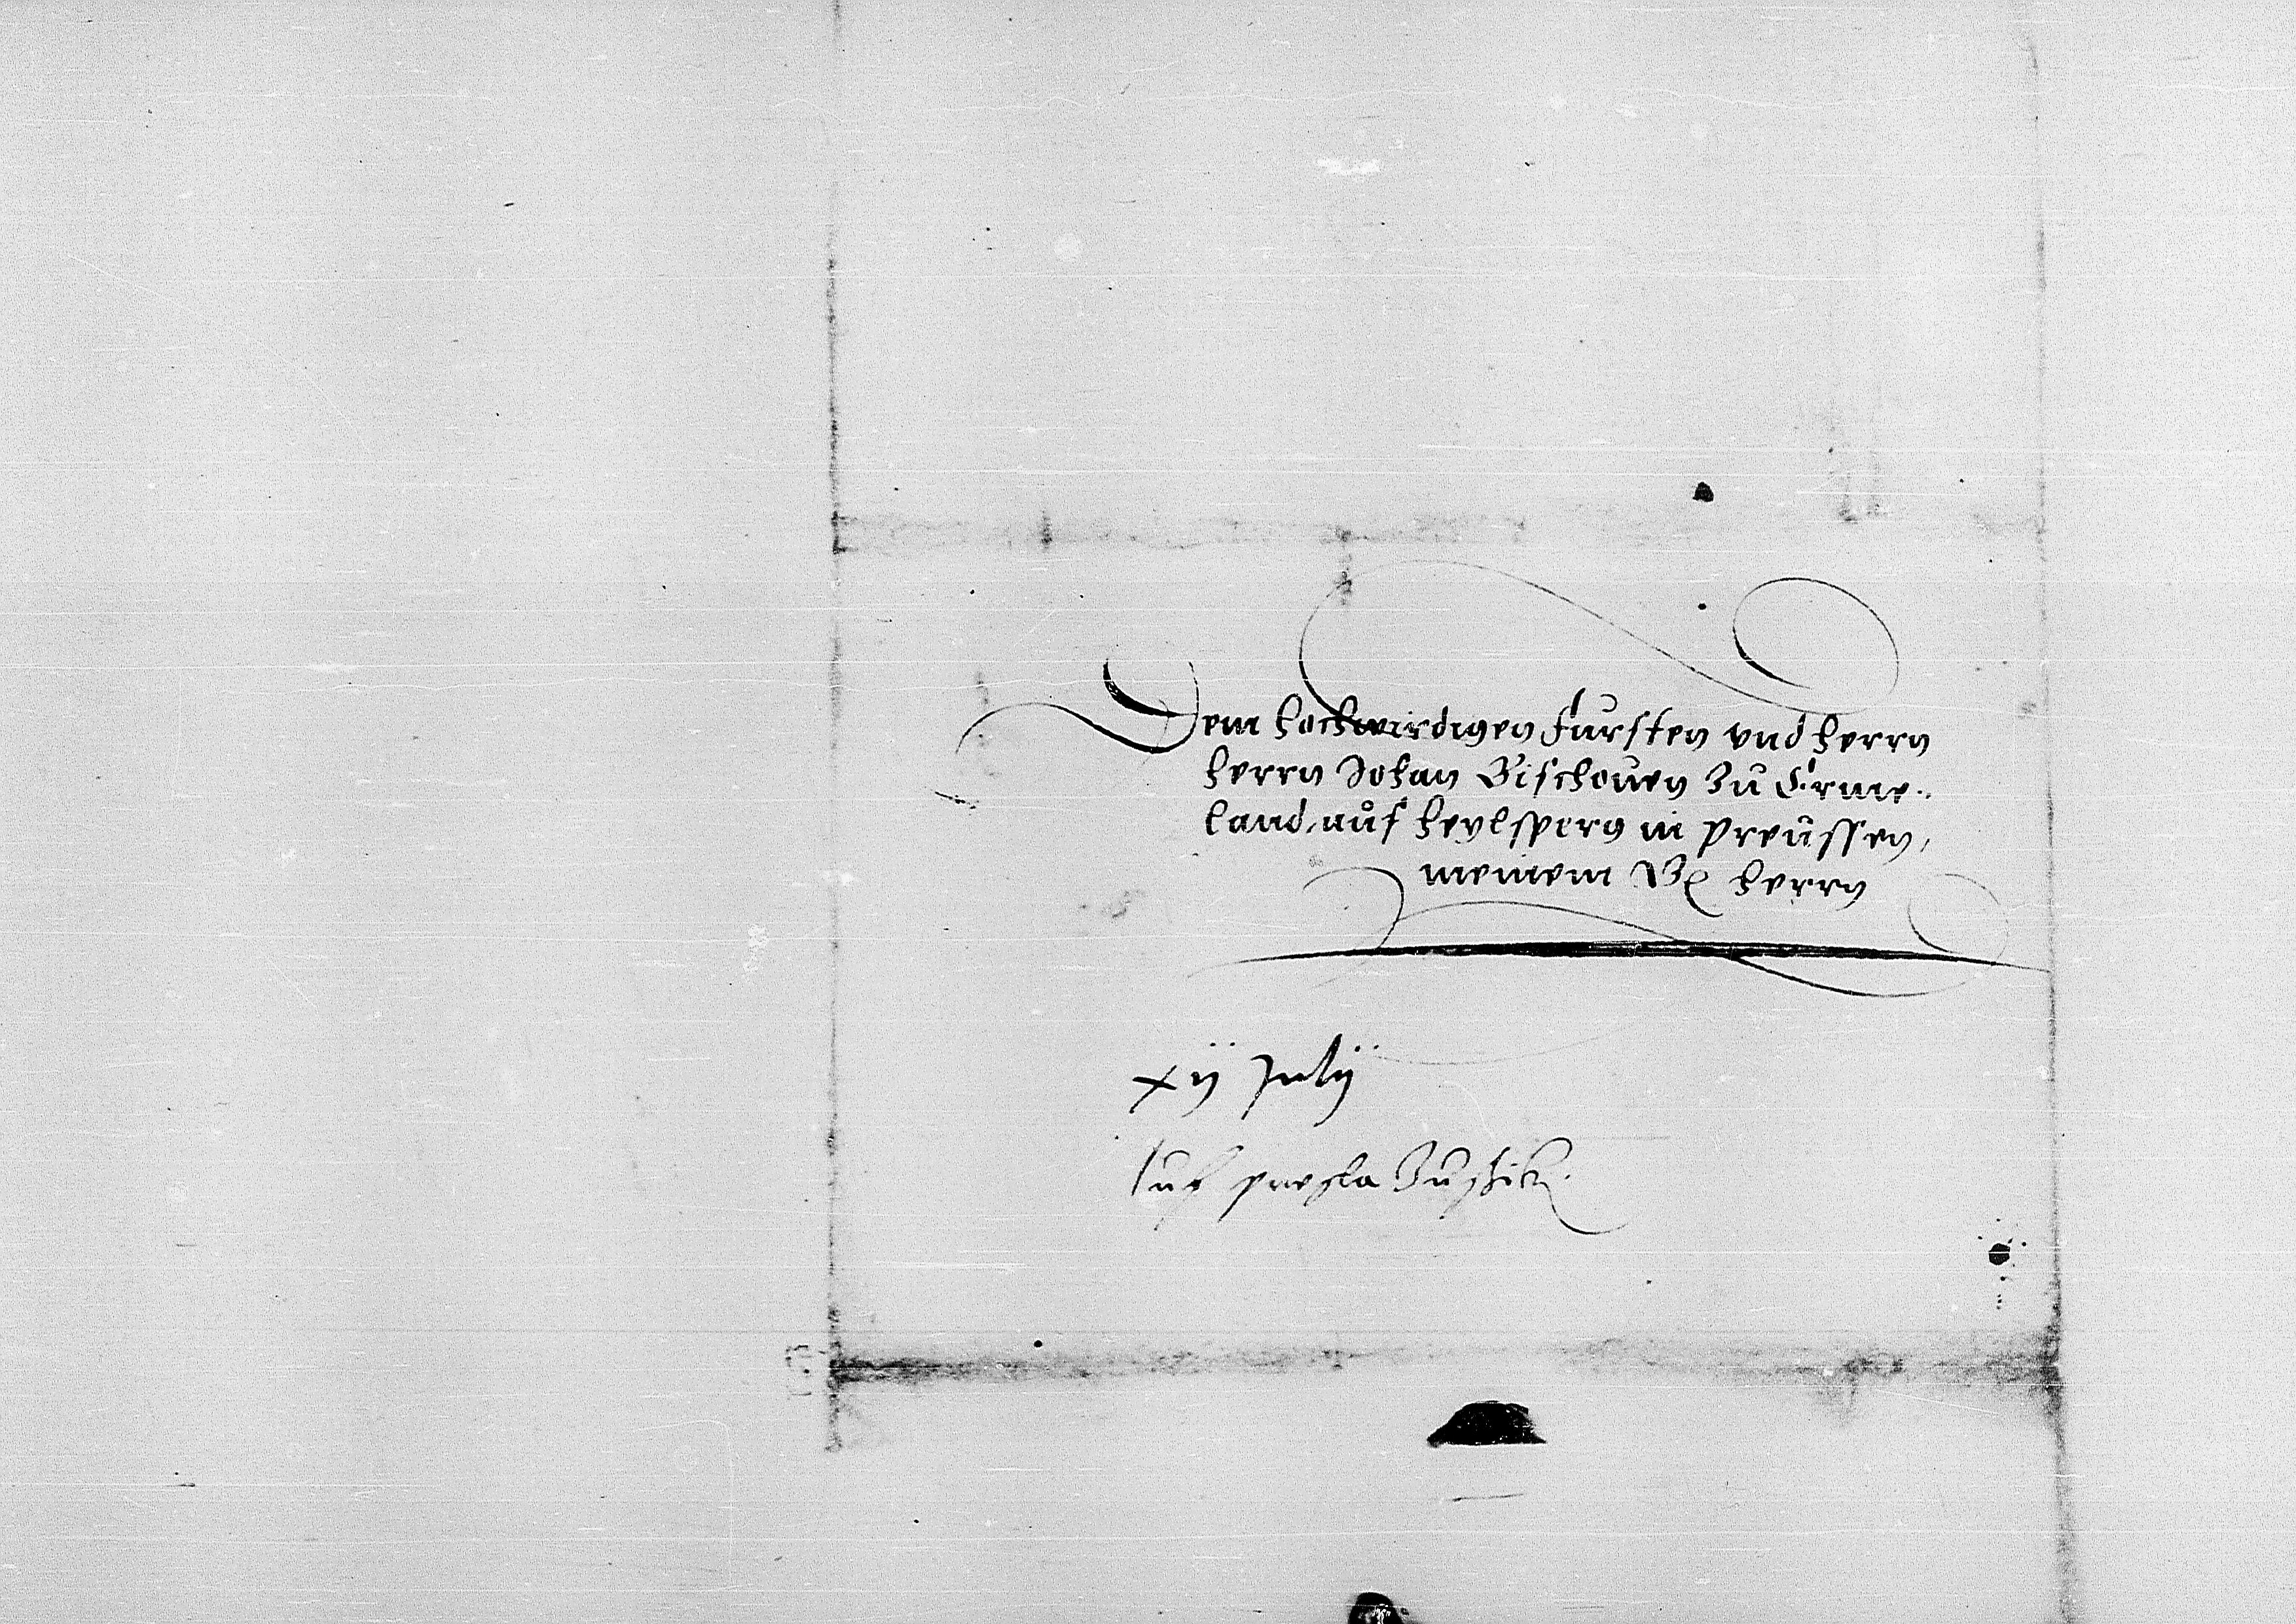 Dem hochwirdigen Fursten vnd herrn
herrn Johan Bischouen Zu Erme..
land, auf Heylsperg in Preussen,
meinem G herrn
xij Julij